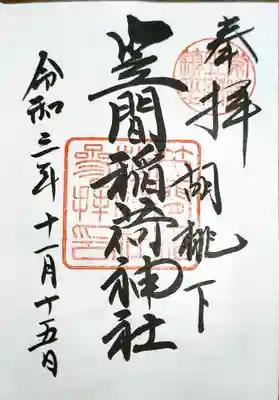 奉拝
胡桃下
笠間稲荷神社
令和三年十一月十五日